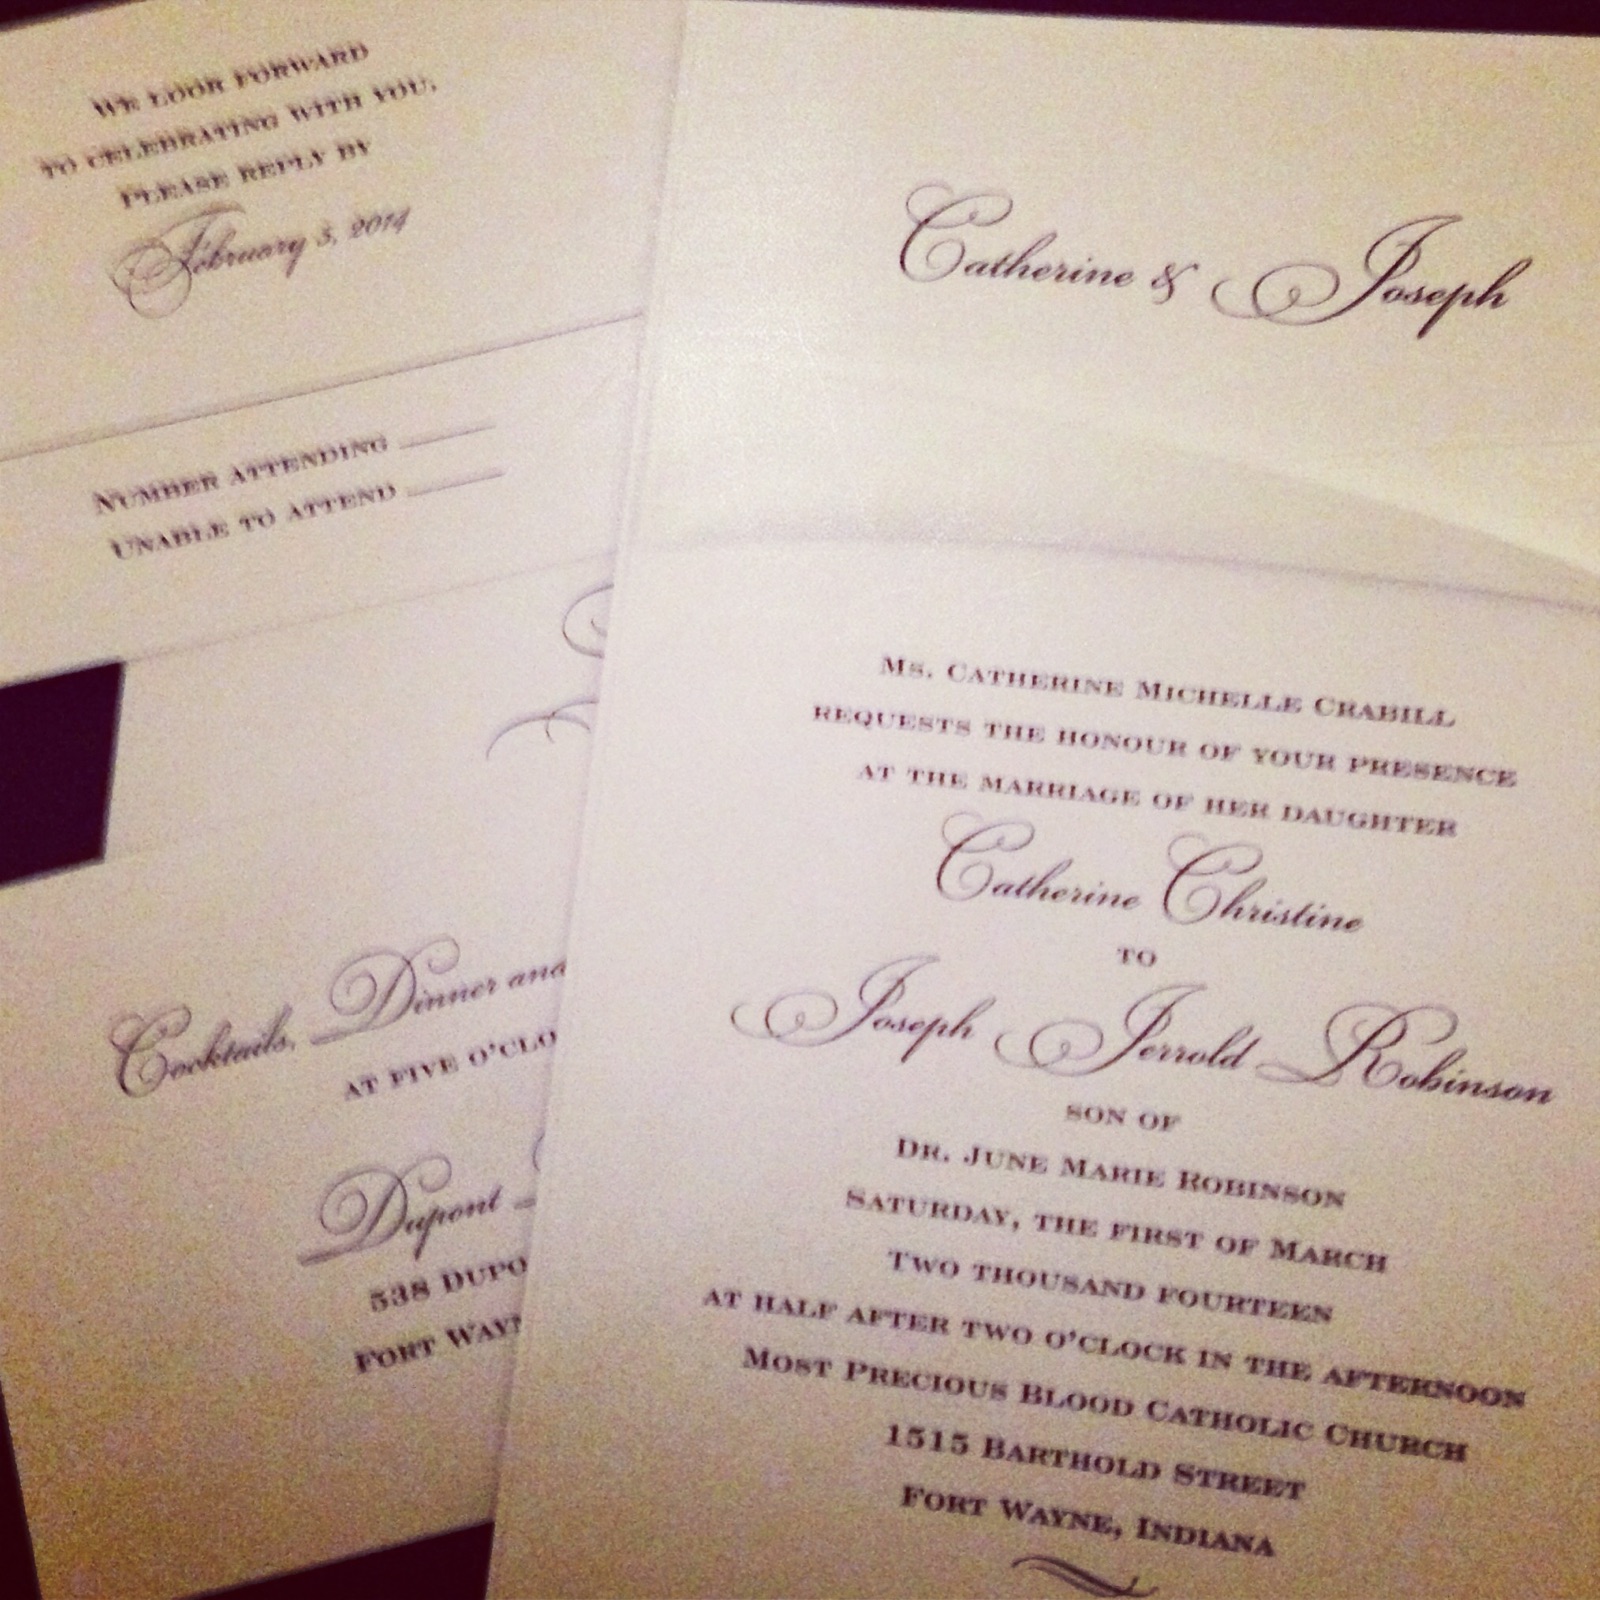 WE LOOK FORWARD
TO CELEBRATING WITH YOU,
PLEASE REPLY BY
February 3, 2014
NUMBER ATTENDING
UNABLE TO ATTEND
Cocktails, Dinner and
AT FIVE O'CLO
Dupont
538 DUPO
FORT WAYN
Catherine & Joseph
MS. CATHERINE MICHELLE CRABILL
REQUESTS THE HONOUR OF YOUR PRESENCE
AT THE MARRIAGE OF HER DAUGHTER
Catherine Christine
TO
Joseph Jerrold Robinson
SON OF
DR. JUNE MARIE ROBINSON
SATURDAY, THE FIRST OF MARCH
TWO THOUSAND FOURTEEN
AT HALF AFTER TWO O'CLOCK IN THE AFTERNOON
MOST PRECIOUS BLOOD CATHOLIC CHURCH
1515 BARTHOLD STREET
FORT WAYNE, INDIANA